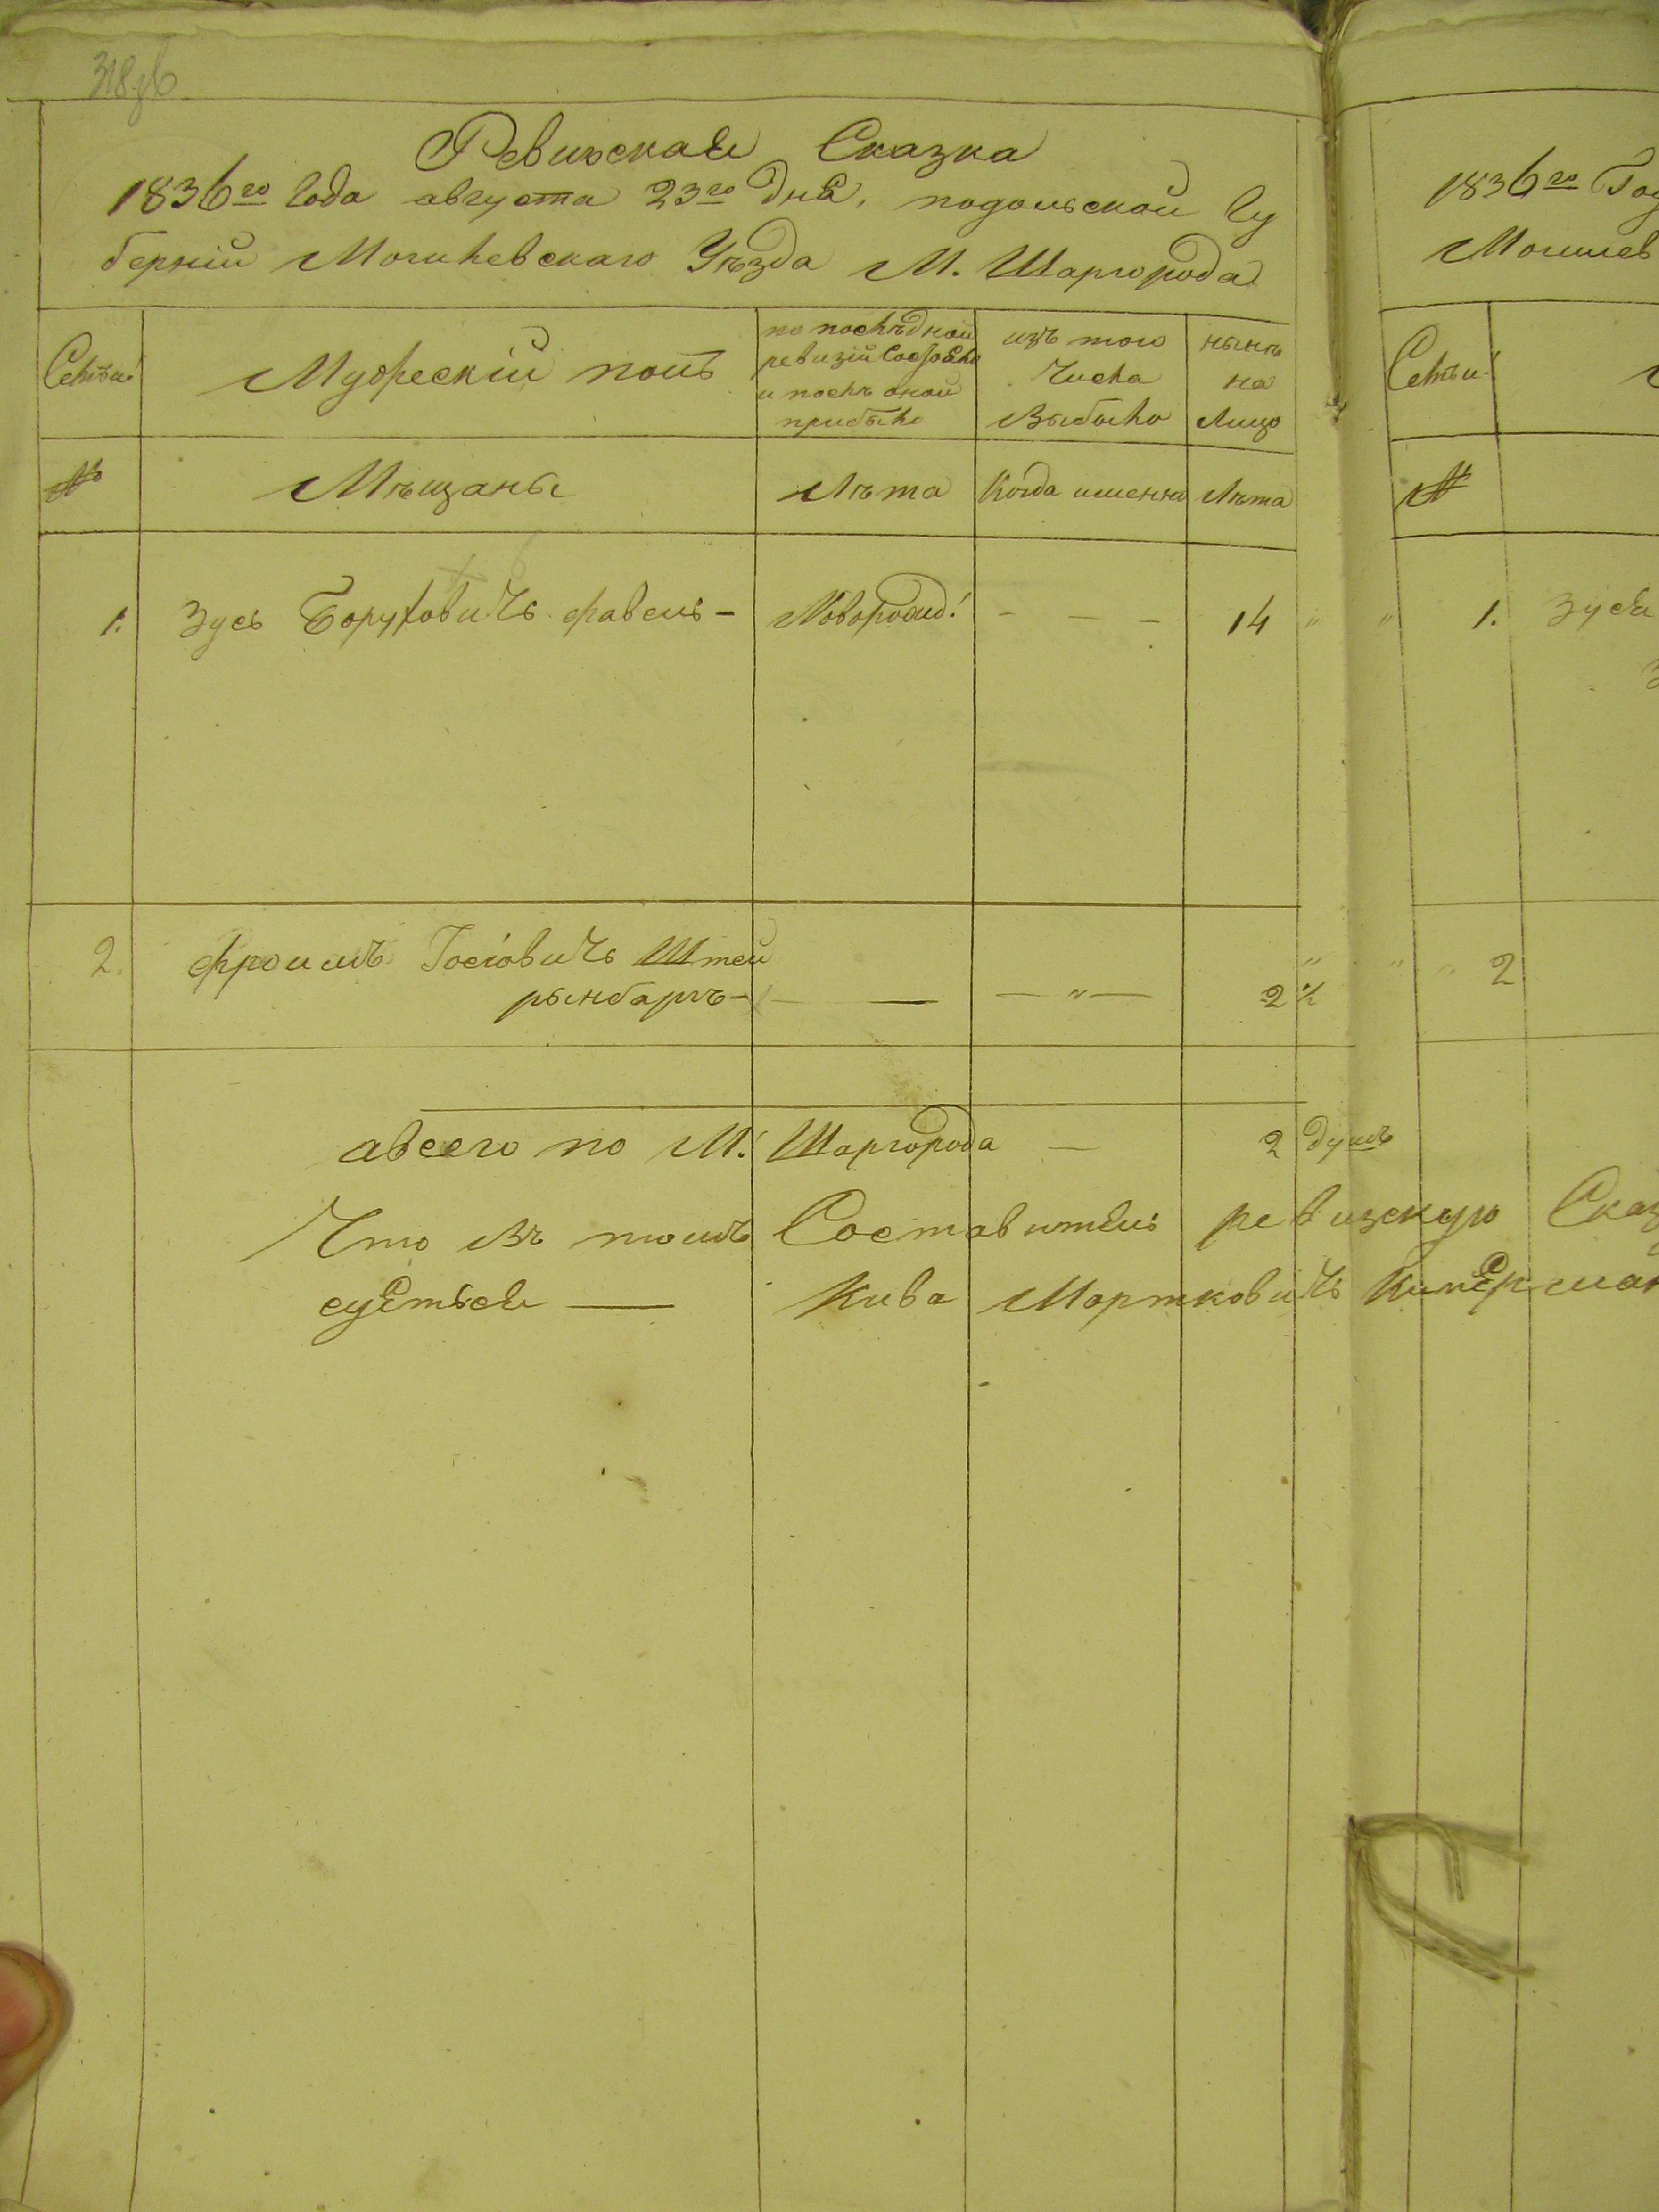 318об
Ревизская Сказка
1836го Года августа 23го дня, подольской Гу
берніи Могилевскаго Уѣзда М. Шаргорода
Семьи
Мужескій полъ
по послѣдной
ревизіи Состояло
и послѣ оной
прибыло
изъ того
Числа
Выбыло
нынѣ
на
Лицо
№
Мѣщаны
Лѣта
Когда именно
Лѣта
1. Зусь Боруховичъ
Новорожд: - - - 14 " "
2. Фроимъ Іосіовичъ Штей
рынбаргъ - — — " — 2 ½ " " "
а всего по М: Шаргорода — 2 душъ
Что въ томъ Составитель ревизскую
Кива Мортковичъ
1836го
Семьи
№
1. Зуся
2